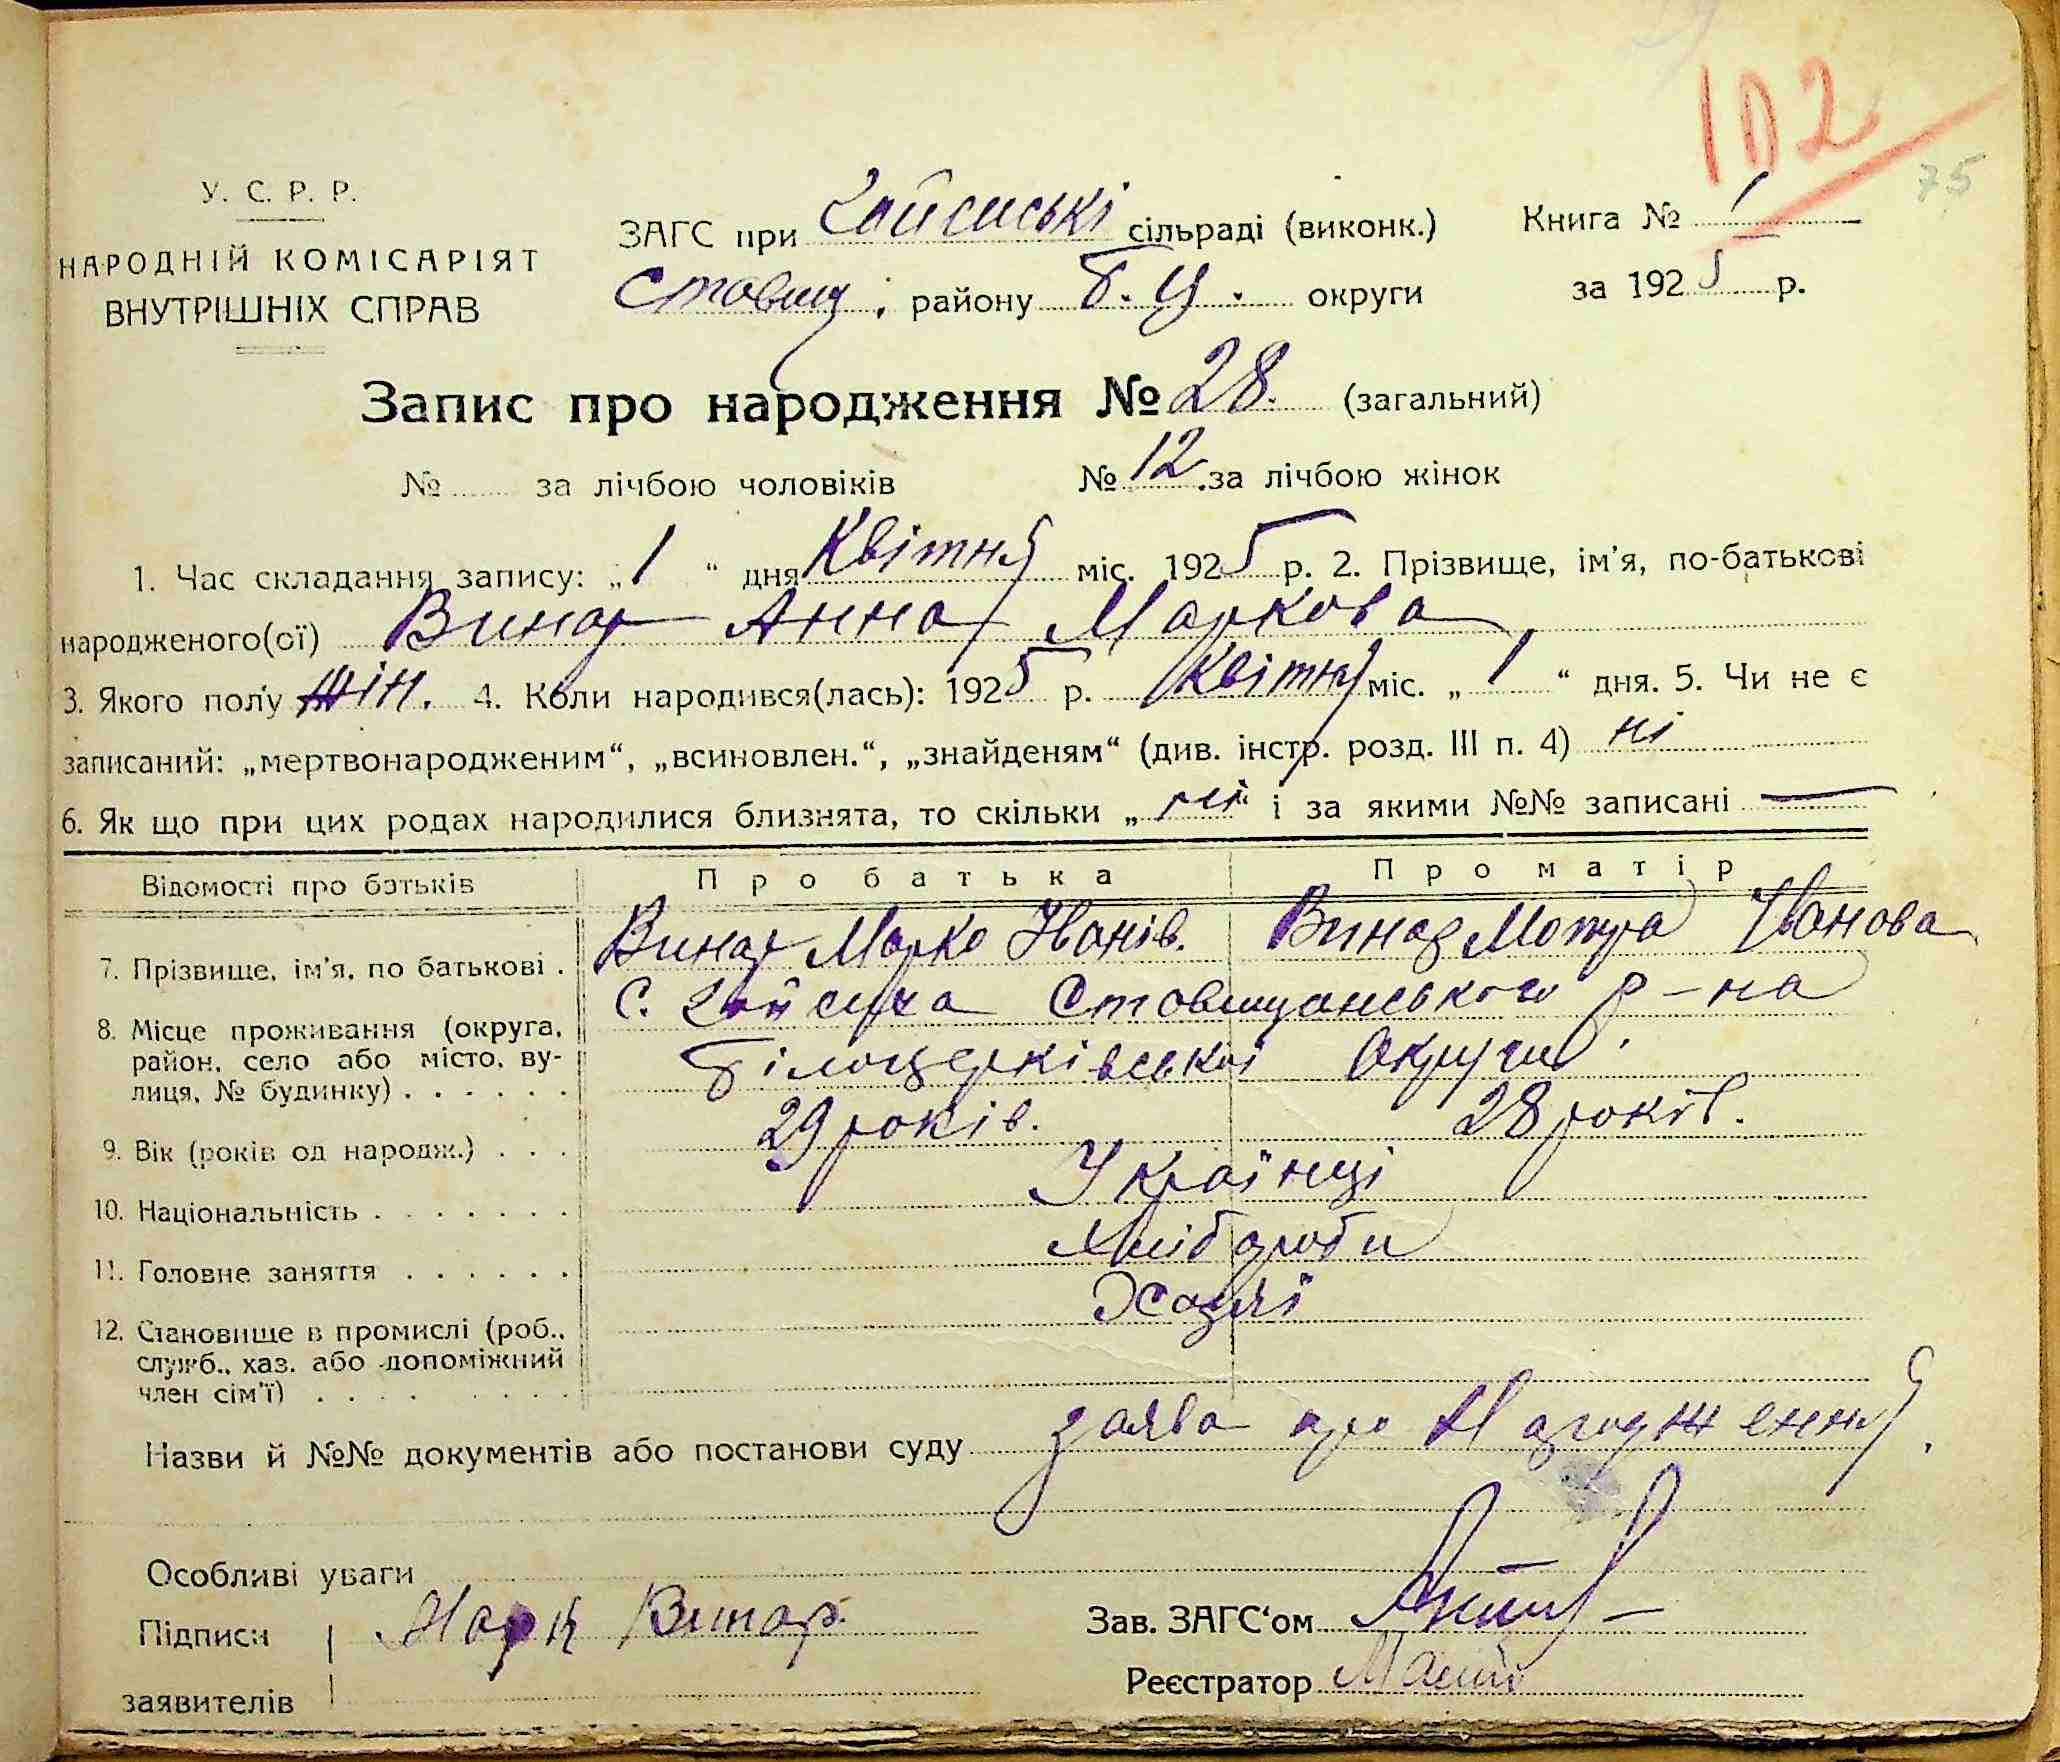 102
75
У. С. Р. Р.
НАРОДНІЙ КОМІСАРІЯТ
ВНУТРІШНІХ СПРАВ
ЗАГС при сільраді (виконк.)
Ставищ. району Б. Ц. округи
Книга № 1
за 1925 р.
Запис про народження № 28. (загальний)
№ за лічбою чоловіків № 12 за лічбою жінок
1. Час складання запису: „1“ дня Квітня міс. 1925 р. 2. Прізвище, ім'я, по-батькові
народженого(ої) Винар Анна Маркова
3. Якого полу жін. 4. Коли народився(лась): 1925 р. Квітня міс. „1“ дня. 5. Чи не є
записаний: „мертвонародженим“, „всиновлен.“, „знайденям“ (див. інстр. розд. III п. 4) ні
6. Як що при цих родах народилися близнята, то скільки „ні“ і за якими №№ записані —
Відомості про батьків Про батька Про матір
7. Прізвище, ім'я, по батькові . Винар Марко Іванів. Винар Мотря Іванова
8. Місце проживання (округа, район, село або місто, вулиця, № будинку) . . . . . . С. Ставищанського р-на
Білоцерківської Округи.
9. Вік (років од народж.) . . . 29 років. 28 років.
10. Національність . . . . . . . Українці
11. Головне заняття . . . . . . Хлібороби
12. Становище в промислі (роб., служб., хаз. або допоміжний член сім'ї) . . . . . . . . Хазяї
Назви й №№ документів або постанови суду заява про Народження.
Особливі уваги
Підписи Марк Винар.
заявителів
Зав. ЗАГС'ом
Реєстратор